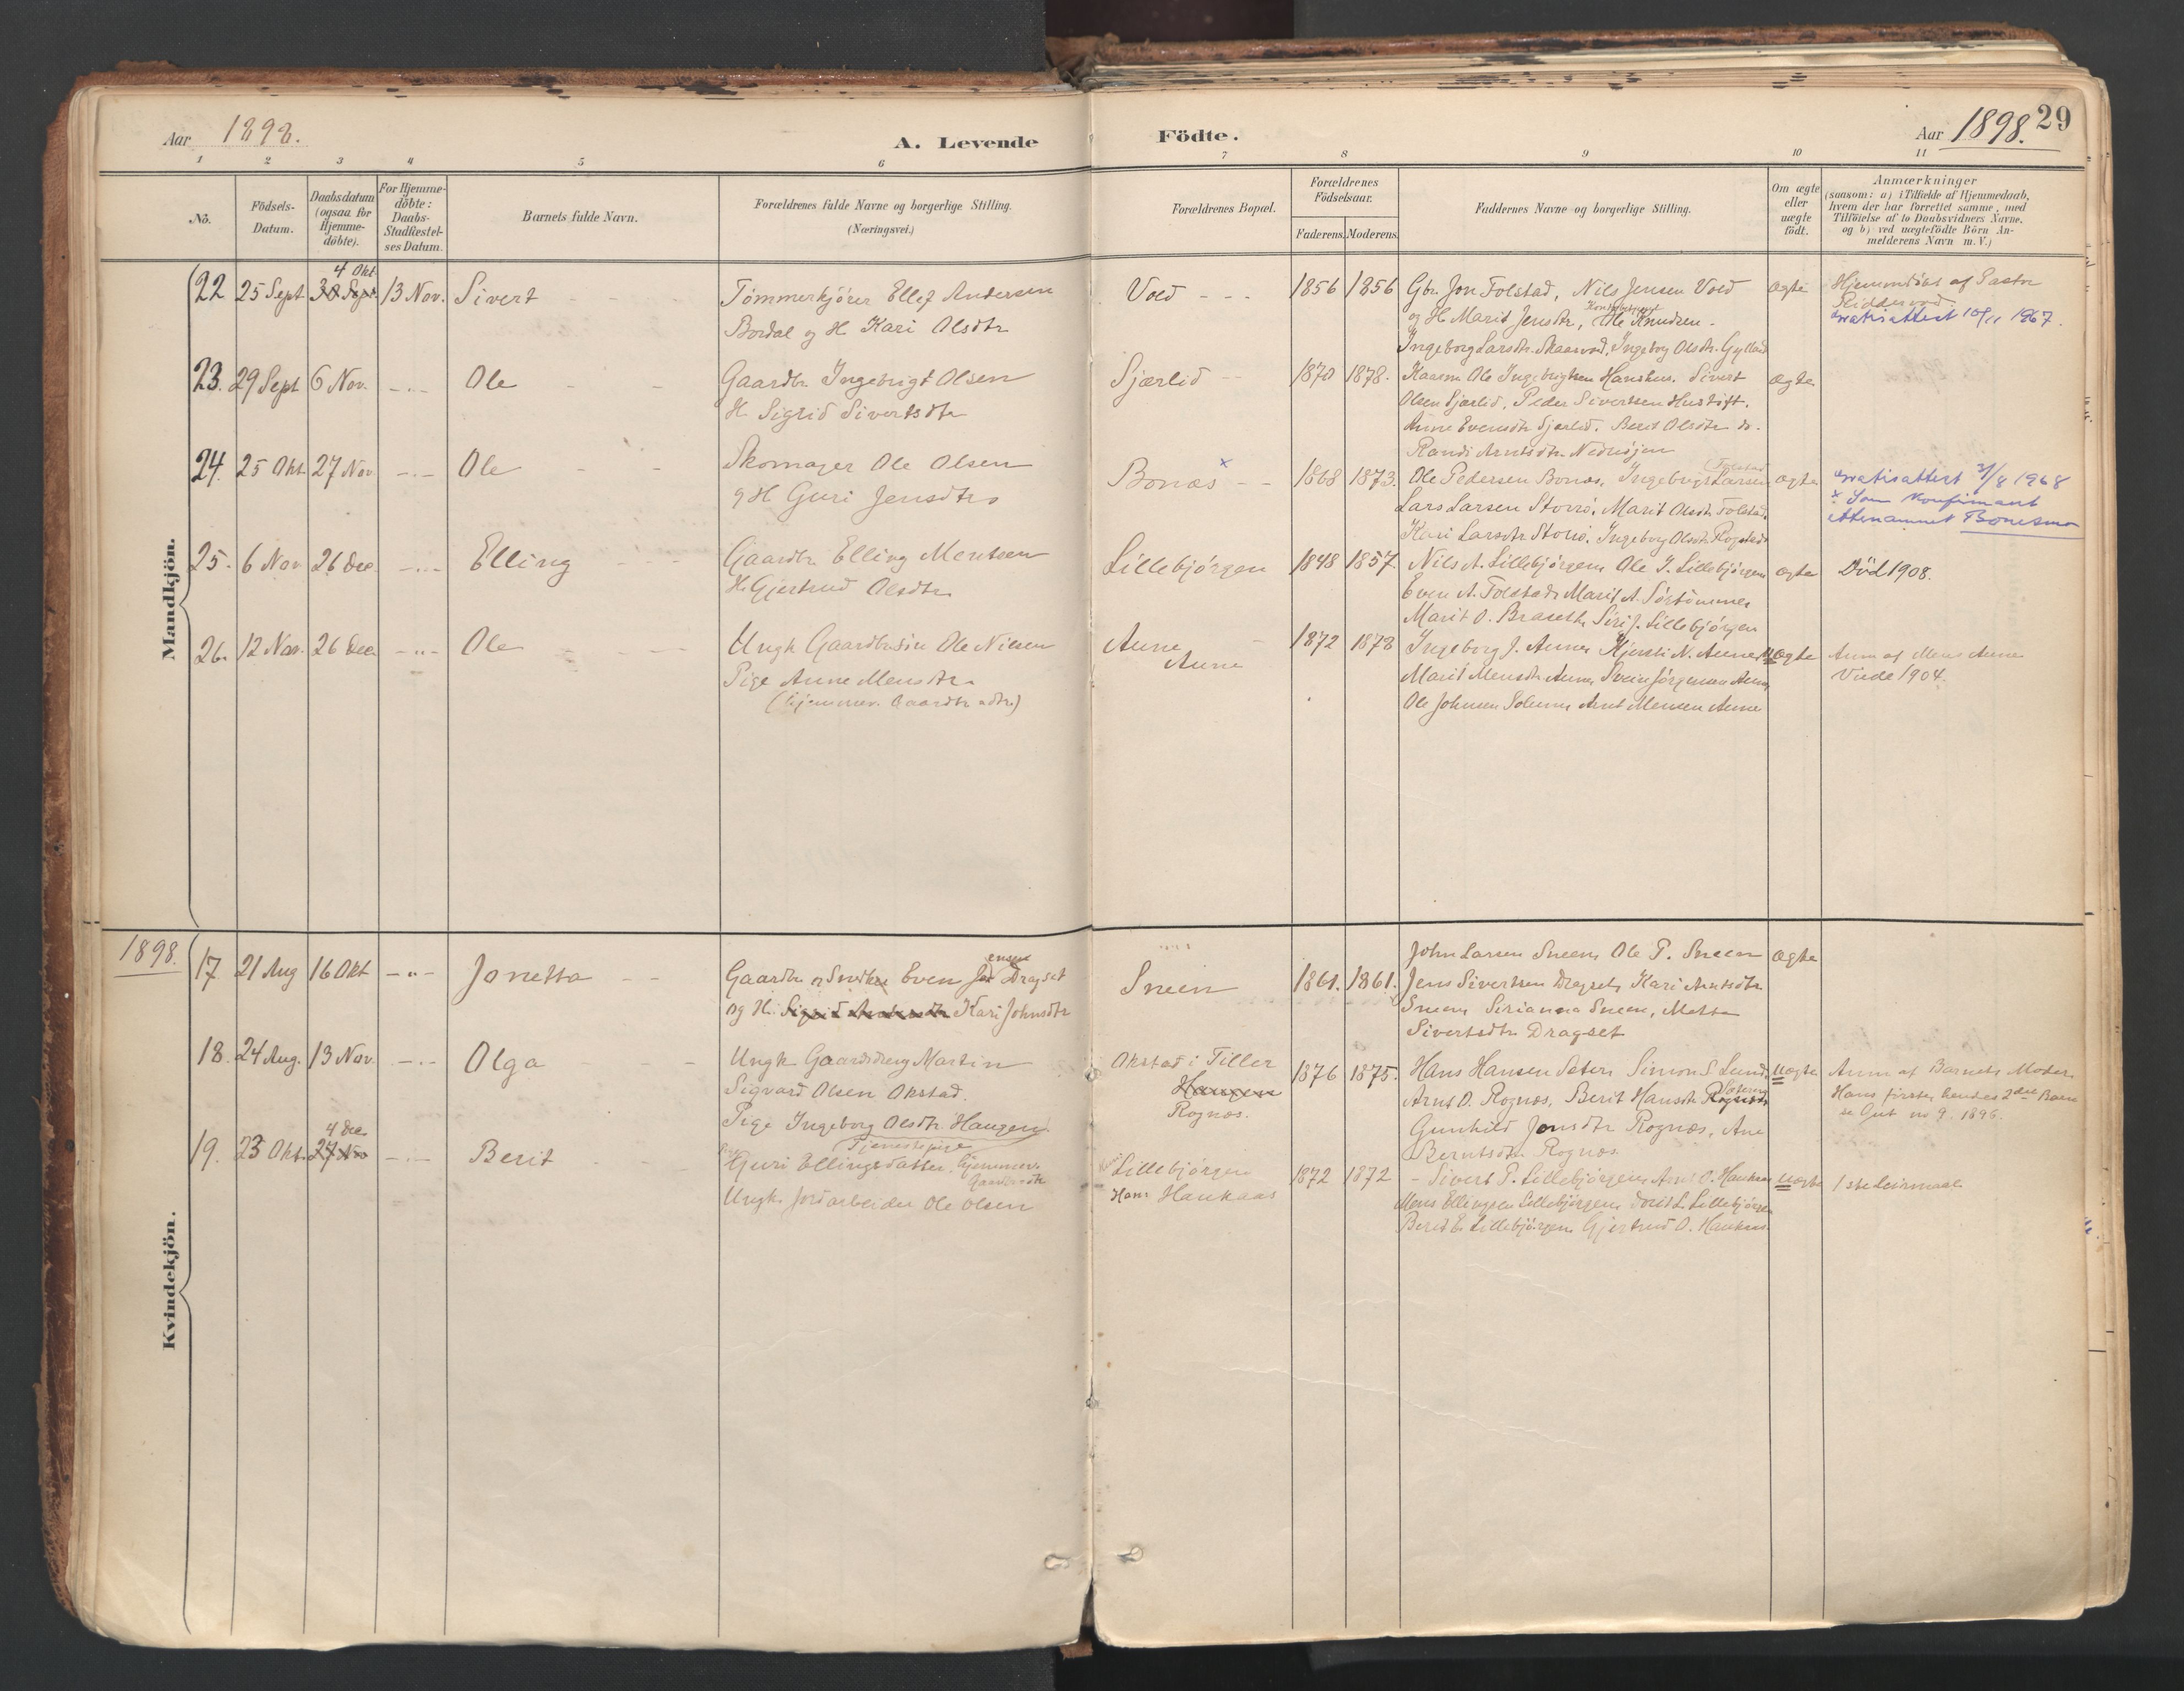 Aar 1898.
A. Levende
Födte.
Aar 1898. 29
1 2 3 4 5 6 7 8 9 10 11
No.
Födsels-
Datum.
Daabsdatum
(ogsaa for
Hjemme-
döbte).
For Hjemme-
döbte:
Daabs-
Stadfæstel-
ses Datum.
Barnets fulde Navn.
Forældrenes fulde Navne og borgerlige Stilling.
(Næringsvei.)
Forældrenes Bopæl.
Forældrenes
Födselsaar.
Faderens. Moderens.
Faddernes Navne og borgerlige Stilling.
Om ægte
eller
uægte
födt.
Anmærkninger
(saasom: a) i Tilfælde af Hjemmedaab,
hvem der har forrettet samme, med
Tilföielse af to Daabsvidners Navne,
og b) ved uægtefödte Börn An-
melderens Navn m. V.)
Mandkjön.
4 Okt
22 25 Sept 30 Sept. 13 Nov. Sivert
Tömmerkjörer Ellef Andersen
Bordal og H. Kari Olsdtr
Vold 1856 1856
Gbr. Jon Folstad, Nils Jensen Vold
og H. Marit Jensdtr, Ole Knudsen.
Ingeborg Larsdtr. Skaarvold, Ingeborg Olsdtr. Gylland
ægte
Hjemmedöbt af Pastor
Riddervold.
Gratisattest 10/11 1967.
23. 29 Sept 6 Nov. -"- Ole
Gaardbr. Ingebrigt Olsen
H. Sigrid Sivertsdtr
Sjærlid 1870 1878.
Kaarm Ole Ingebrigtsen Hanshus. Sivert
Olsen Sjærlid, Peder Sivertsen Hustöft.
Anne Evensdtr Sjærlid. Berit Olsdtr do.
Randi Arntsdtr.
ægte
24. 25 Okt. 27 Nov. -"- Ole
Skomager Ole Olsen
og H. Guri Jensdtr.
Bonæs x 1868 1873.
Folstad
Ole Pedersen Bonæs, Ingebrigt Larsen
Lars Larsen Storrö, Marit Olsdtr Folstad.
Kari Larsdtr Storrö. Ingeborg Olsdtr Rogstad
ægte
Gratisattest 21/8 1968
x Som konfirmant
ettenamnet Bonesmo
25. 6 Nov 26 Dec. -"- Elling
Gaardbr. Elling Mentsen
H. Gjertrud Olsdtr.
Lillebjörgen 1848 1857.
Nils A. Lillebjörgen, Ole J. Lillebjörgen
Even A. Folstad, Marit A. Sörtömmer
Marit O. Siri J. Lillebjörgen
ægte
Död 1908.
26. 12 Nov. 26 Dec. -"- Ole
Ungk. Gaardbr.sön Ole Nilsen
Pige Anne Mensdtr.
(hjemmev. Gaardbr.adtr.)
Aune
Aune
1872 1878
Ingeborg J. Aune, Kjersti N. Aune,
Marit Mensdtr Aune, Svein Jörgensen Aune
Ole Johnsen Solem, Arnt Mensen Aune
uægte
Anm af Mens Aune
Viede 1904.
Kvindekjön.
1898. 17 21 Aug 16 Okt -"- Jonetta
Gaardbr. og Snedker Even Dragset
og H. Sigrid Andersdtr Kari Johnsdtr
Sneen 1861. 1861.
John Larsen Sneen, Ole P. Sneen
Jens Sivertsen Dragset, Kari Arntsdtr
Sneen, Sirianna Sneen, Mette
Sivertsdtr Dragset
ægte
18. 24 Aug. 13 Nov. -"- Olga
Ungk. Gaardsdreng Martin
Sigvard Olsen Okstad.
Pige Ingeborg Olsdtr. Haugen.
Okstad i Tiller
Haugen
Rognæs.
1876 1875.
Hans Hansen Sæter, Simon S. Lund.
Arnt O. Rognæs, Berit Hansdtr
Gunhild Jonsdtr Rognæs, Ane
Berntsdtr. Rognæs
uægte
Anm af Barnets Moder.
Hans förste, hendes 2den Barn
se Gut no 9. 1896.
4 Dec.
19. 23 Okt. 27 Nov -"- Berit
Tjenestepige
Guri Ellingsdatter. hjemmev.
Ungk. Jordarbeider Ole Olsen
Lillebjörgen
Hans Haukaas
1872 1872
- Sivert P. Lillebjörgen, Arnt O. Haukaas
Mens Ellingsen Lillebjörgen, L. Lillebjörgen
Berit E. Lillebjörgen, Gjertrud O. Haukaas.
uægte
1ste Leiermaal